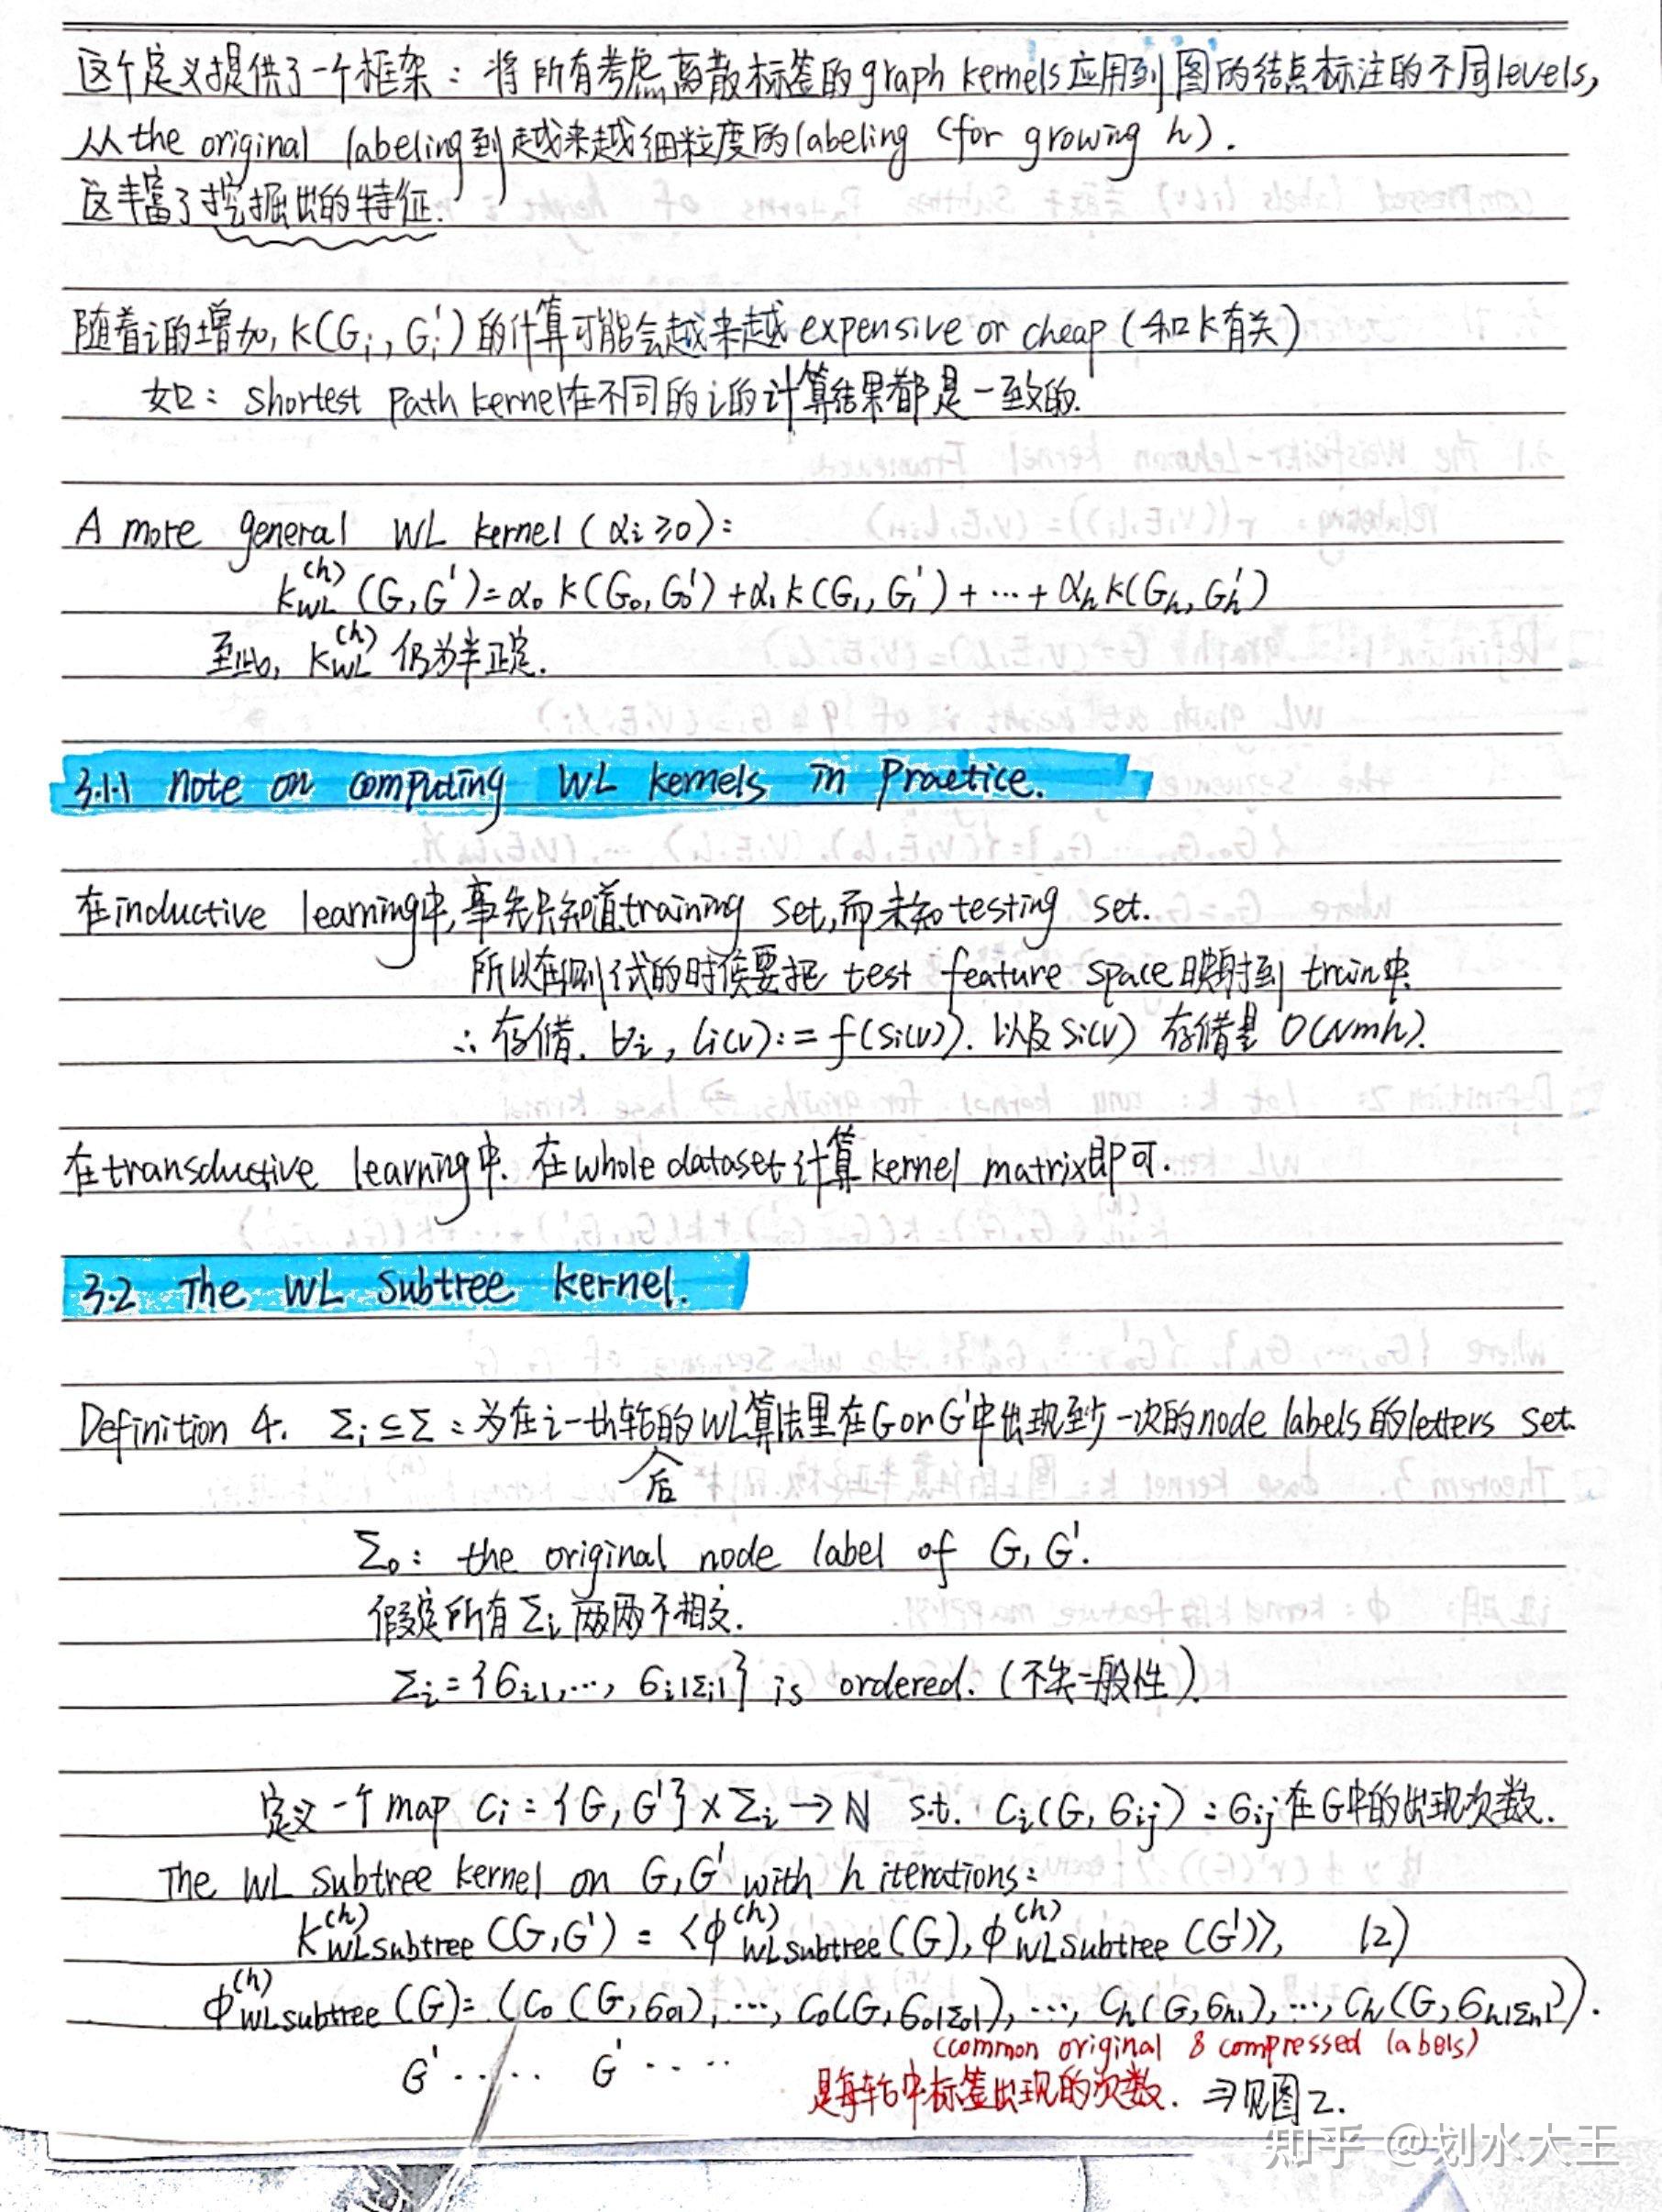 这个定义提供了一个框架：将所有考虑离散标签的graph kernels应用到图的结点标注的不同levels,
从the original labeling到越来越细粒度的labeling (for growing h).
这丰富了挖掘出的特征.
随着i的增加, k(Gi, Gi')的计算可能会越来越expensive or cheap (和k有关)
如: shortest path kernel在不同的i的计算结果都是一致的.
A more general WL kernel (αi≥0):
k_WL^(h) (G,G')=α0 k(G0,G0')+α1 k(G1,G1')+⋯+αh k(Gh,Gh')
至此, k_WL^(h) 仍为半正定.
3.1.1 note on computing WL kernels in practice.
在inductive learning中,事先只知道training set,而未知testing set.
所以在测试的时候要把 test feature space映射到 train中.
∴ 存储. ∀i, li(v):=f(si(v)). 以及si(v) 存储是 O(Nmh).
在transductive learning中. 在whole dataset计算kernel matrix即可.
3.2 The WL subtree kernel.
Definition 4. Σi⊆Σ: 为在i-th轮的WL算法里在G or G'中出现至少一次的node labels的letters set.
后
Σ0: the original node label of G, G'.
假定所有Σi两两不相交.
Σi={σi1,…, σi|Σi|} is ordered. (不失一般性).
定义一个map ci: {G,G'}×Σi→ℕ s.t. ci(G,σij): σij在G中的出现次数.
The WL subtree kernel on G,G' with h iterations:
k_WLsubtree^(h) (G,G') = ⟨φ_WLsubtree^(h) (G), φ_WLsubtree^(h) (G')⟩, (2)
φ_WLsubtree^(h) (G)= (c0(G,σ01),…, c0(G,σ0|Σ0|),…, ch(G,σh1),…, ch(G,σh|Σh|)).
(common original & compressed labels)
G' ‥‥‥ G' ‥‥‥
是每轮中标签出现的次数. ⇒见图2.
知乎 @划水大王